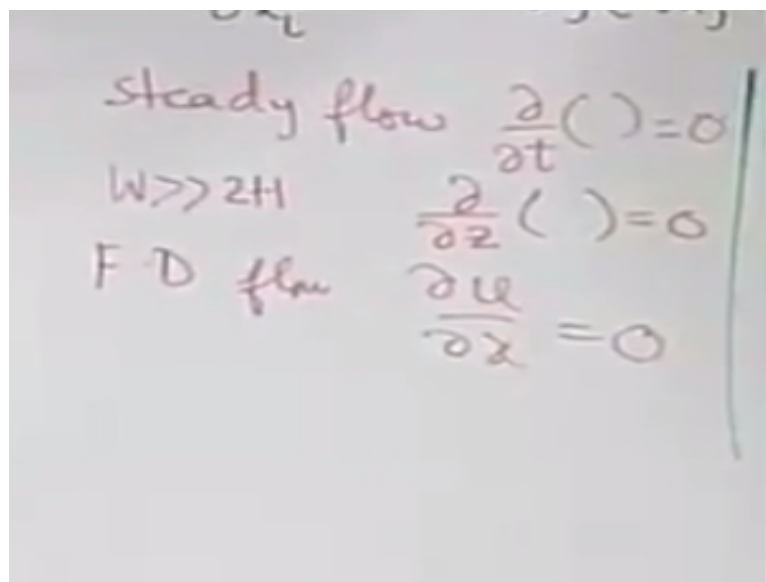 steady flow ∂/∂t ( ) = 0
W>>2H ∂/∂z ( ) = 0
F D flow ∂u/∂x = 0